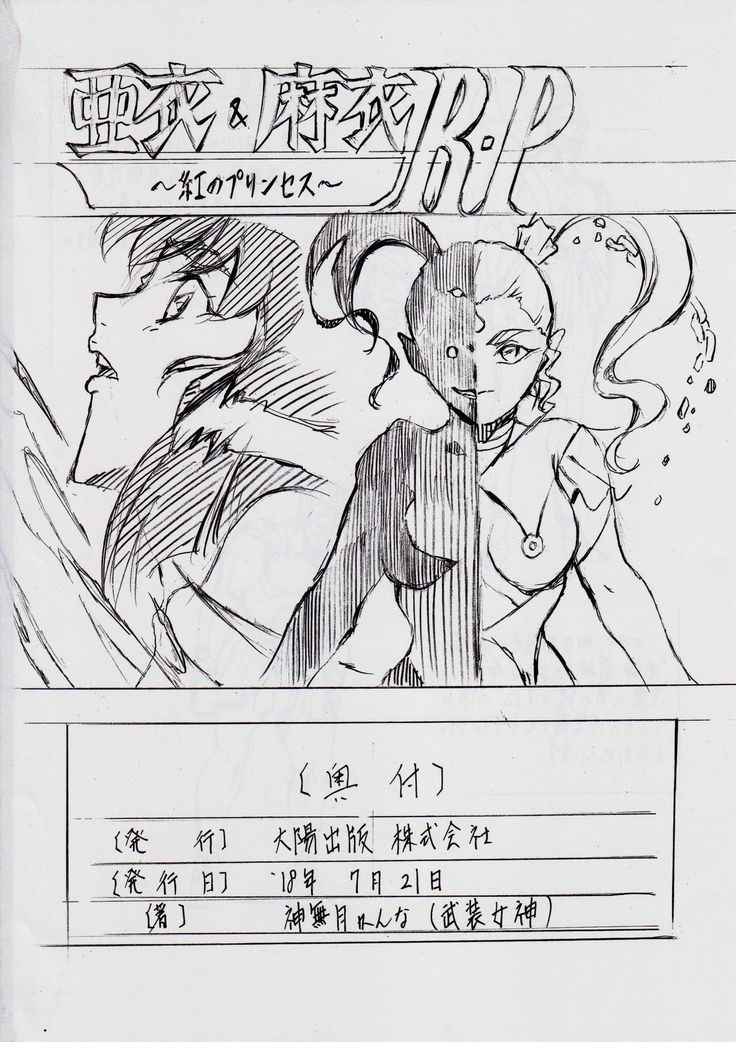 亜衣&麻衣R・P
～紅のプリンセス～
〔奥付〕
〔発行〕 太陽出版 株式会社
〔発行日〕 '18年 7月21日
〔著〕 神無月かんな(武装女神)